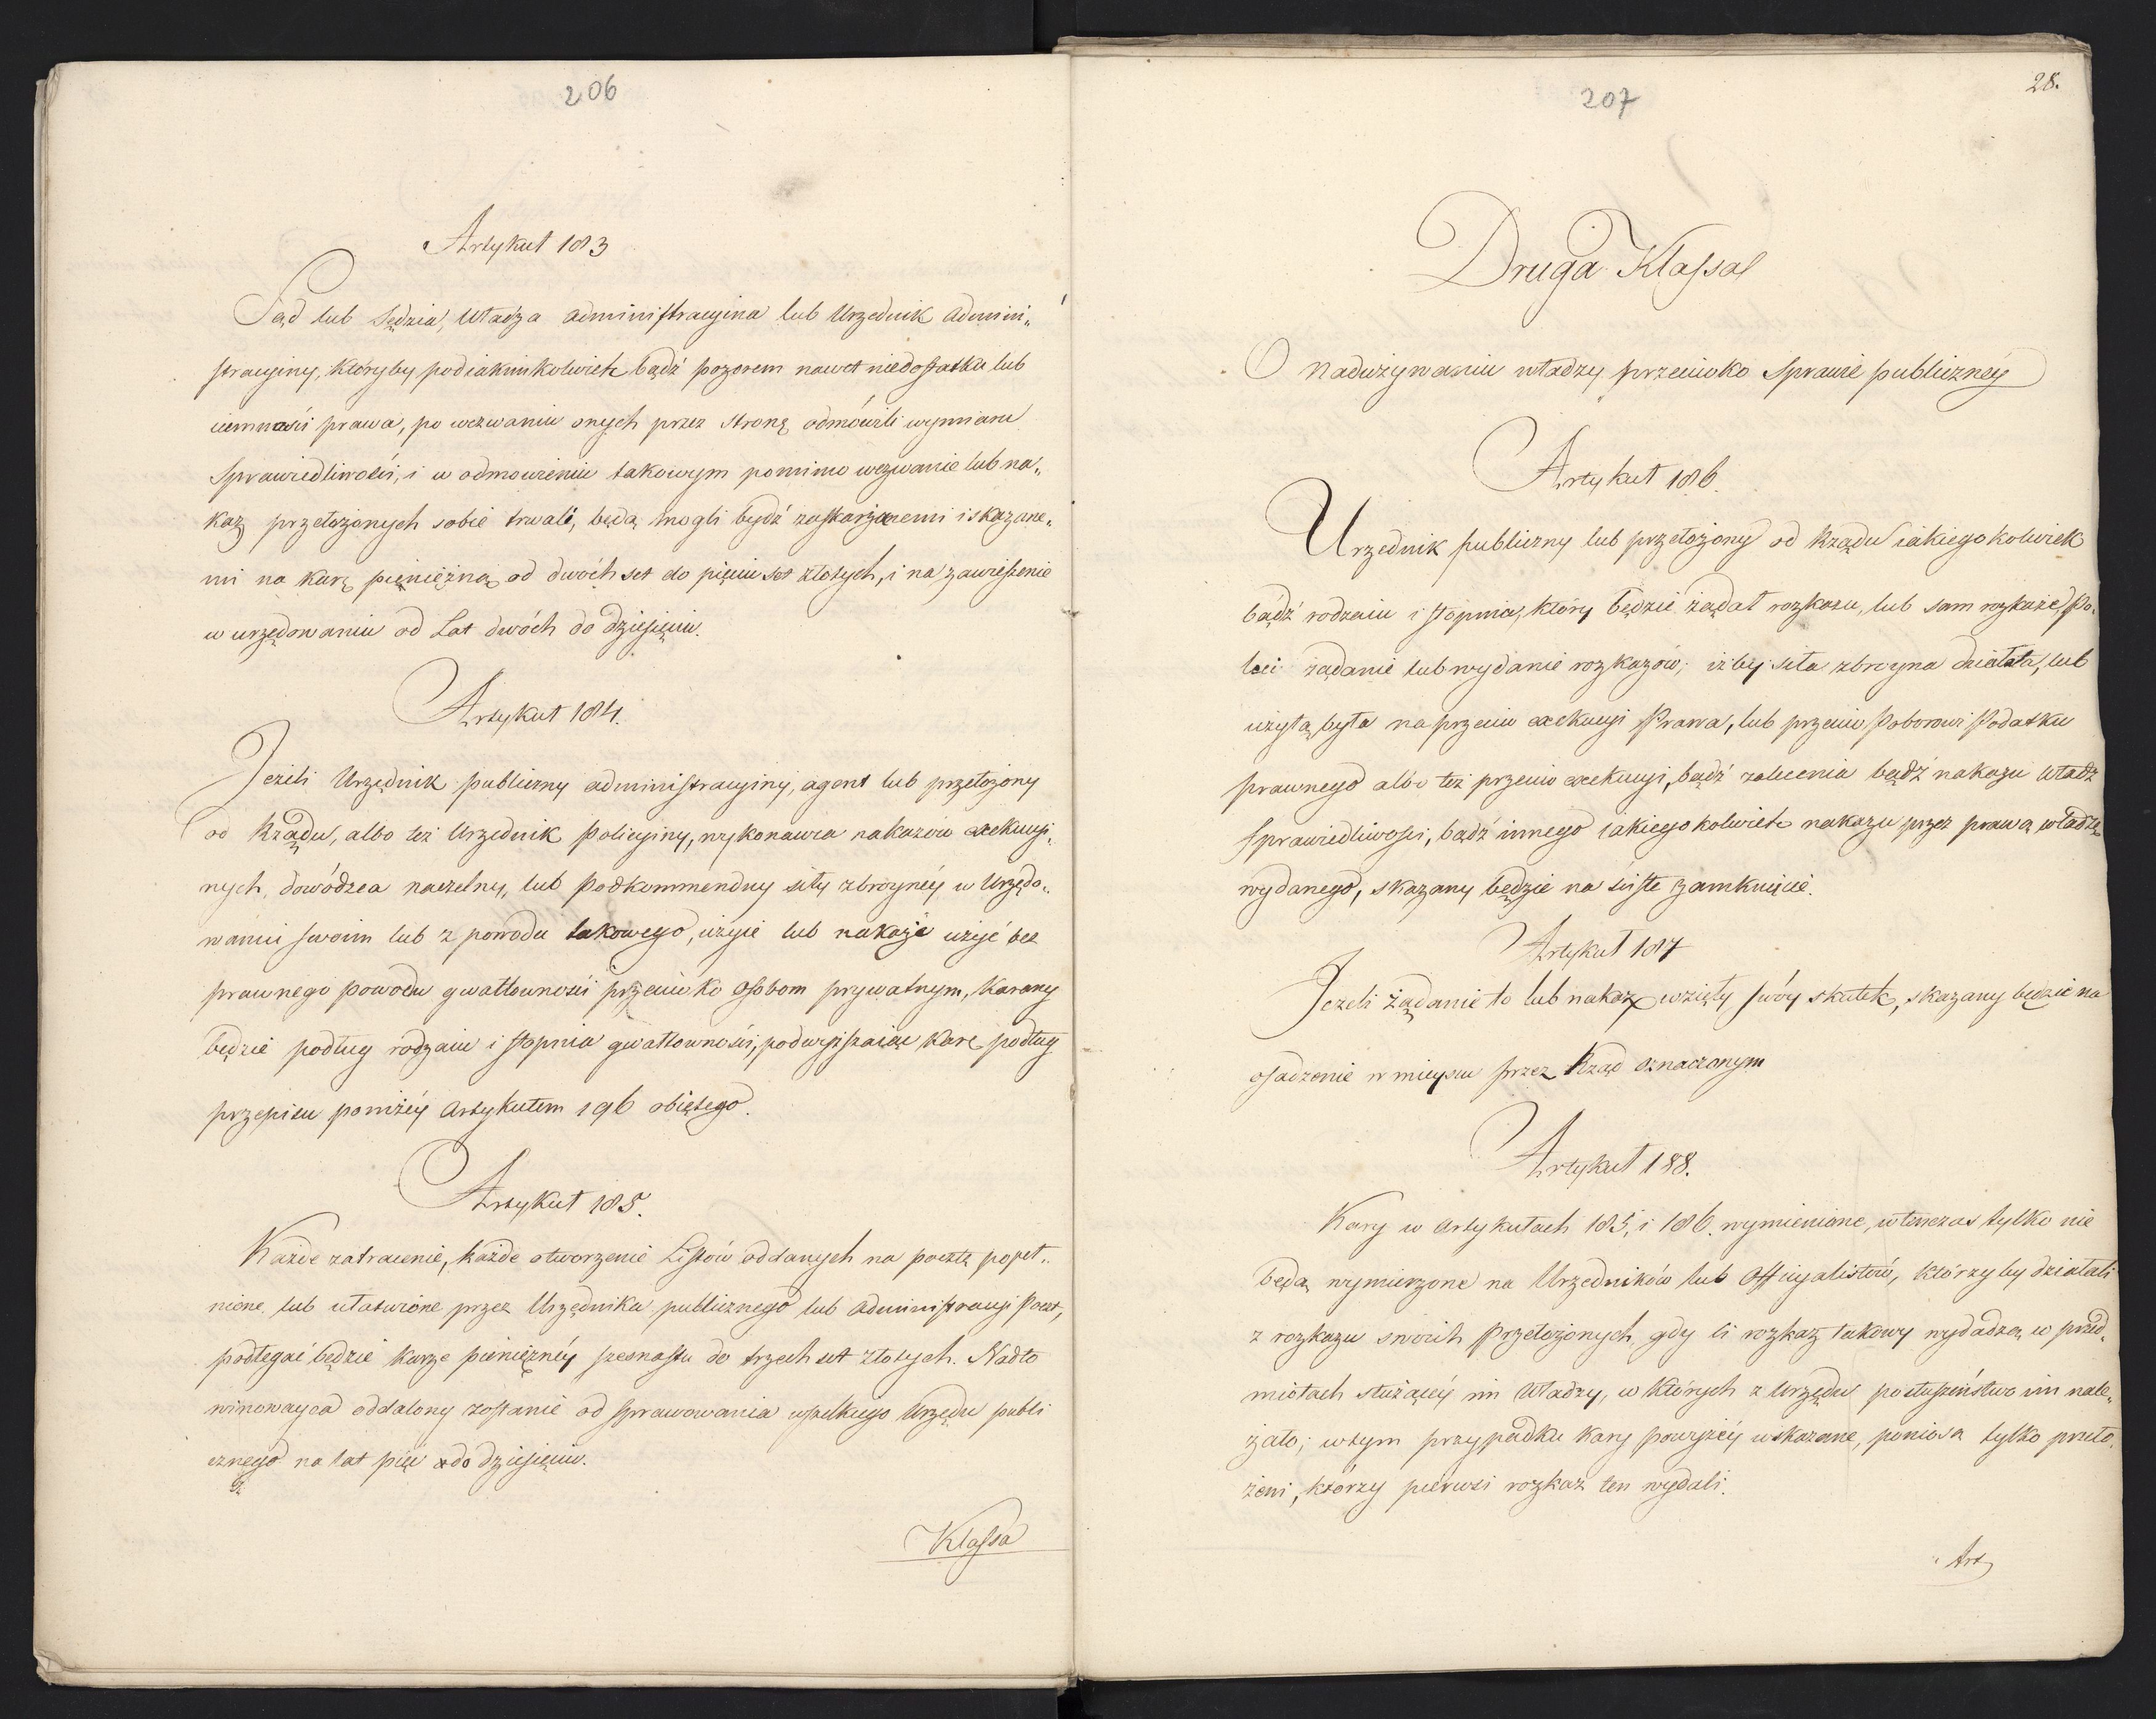 206
Artykuł 183
Sąd lub Sędzia, Władza administracyina lub Urzędnik admini„
stracyiny, któryby pod iakimkolwiek bądź pozorem nawet niedostatku lub
ciemności prawa, po wezwaniu onych przez stronę odmówili wymiaru
Sprawiedliwości, i w odmowieniu takowym pomimo wezwanie lub na„
kaz przełożonych sobie trwali, będą mogli bydź zaskarżonemi i skazane„
mi na karę pieniężną od dwóch set do pięciu set złotych, i na zawieszenie
w urzędowaniu od Lat dwóch do dziesięciu.
Artykuł 184.
Jeżeli Urzędnik publiczny administracyiny, agent lub przełożony
od Rządu, albo też Urzędnik policyiny, wykonawca nakazów exekucyi„
nych, dowódzca naczelny, lub podkommendny siły zbroynéy w Urzędo„
waniu swoim lub z powodu takowego, użyie lub nakaże użyć bez
prawnego powodu gwałtowności przeciwko osobom prywatnym, karany
będzie podług rodzaiu i stopnia gwałtowności, podwyższaiąc karę podług
przepisu poniżéy artykułem 196 obiętego.
Artykuł 185.
Każde zatracenie, każde otworzenie Listów oddanych na pocztę popeł„
nione lub ułatwione przez Urzędnika publicznego lub administracyi poczt,
podlegać będzie karze pieniężnéy szesnastu do trzech set złotych. Nadto
winowayca oddalony zostanie od sprawowania wszelkiego Urzędu publi
cznego na lat pięć do dziesięciu.
Klassa
207
28.
Druga Klassa
O nadużywaniu władzy przeciwko Sprawie publicznéy
Artykuł 186.
Urzędnik publiczny lub przełożony od Rządu iakiegokolwiek
bądź rodzaiu i stopnia, który będzie żądał rozkazu, lub sam rozkaże, po„
leci żądanie lub wydanie rozkazów, iżby siła zbroyna działała, lub
użytą była na przeciw exekucyi Prawa, lub przeciw Poborowi Podatku
prawnego albo też przeciw exekucyi, bądź zalecenia bądź nakazu władz
Sprawiedliwości, bądź innego iakiegokolwiek nakazu przez prawą władzę
wydanego, skazany będzie na ścisłe zamknięcie.
Artykuł 187
Jeżeli żądanie to lub nakaz wzięły swóy skutek, skazany będzie na
osadzenie w mieyscu przez Rząd oznaczonym
Artykuł 188.
Kary w artykułach 185, i 186. wymienione, wtenczas tylko nie
będą wymierzone na Urzędników lub Officyalistów, którzyby działali
z rozkazu swoich Przełożonych, gdy li rozkaz takowy wydadzą w przed„
miotach służącéy im władzy, w których z Urzędu posłuszeństwo im nale„
żało; w tym przypadku kary powyżéy wskazane, poniosą tylko przeło„
żeni, którzy pierwsi rozkaz ten wydali.
Art